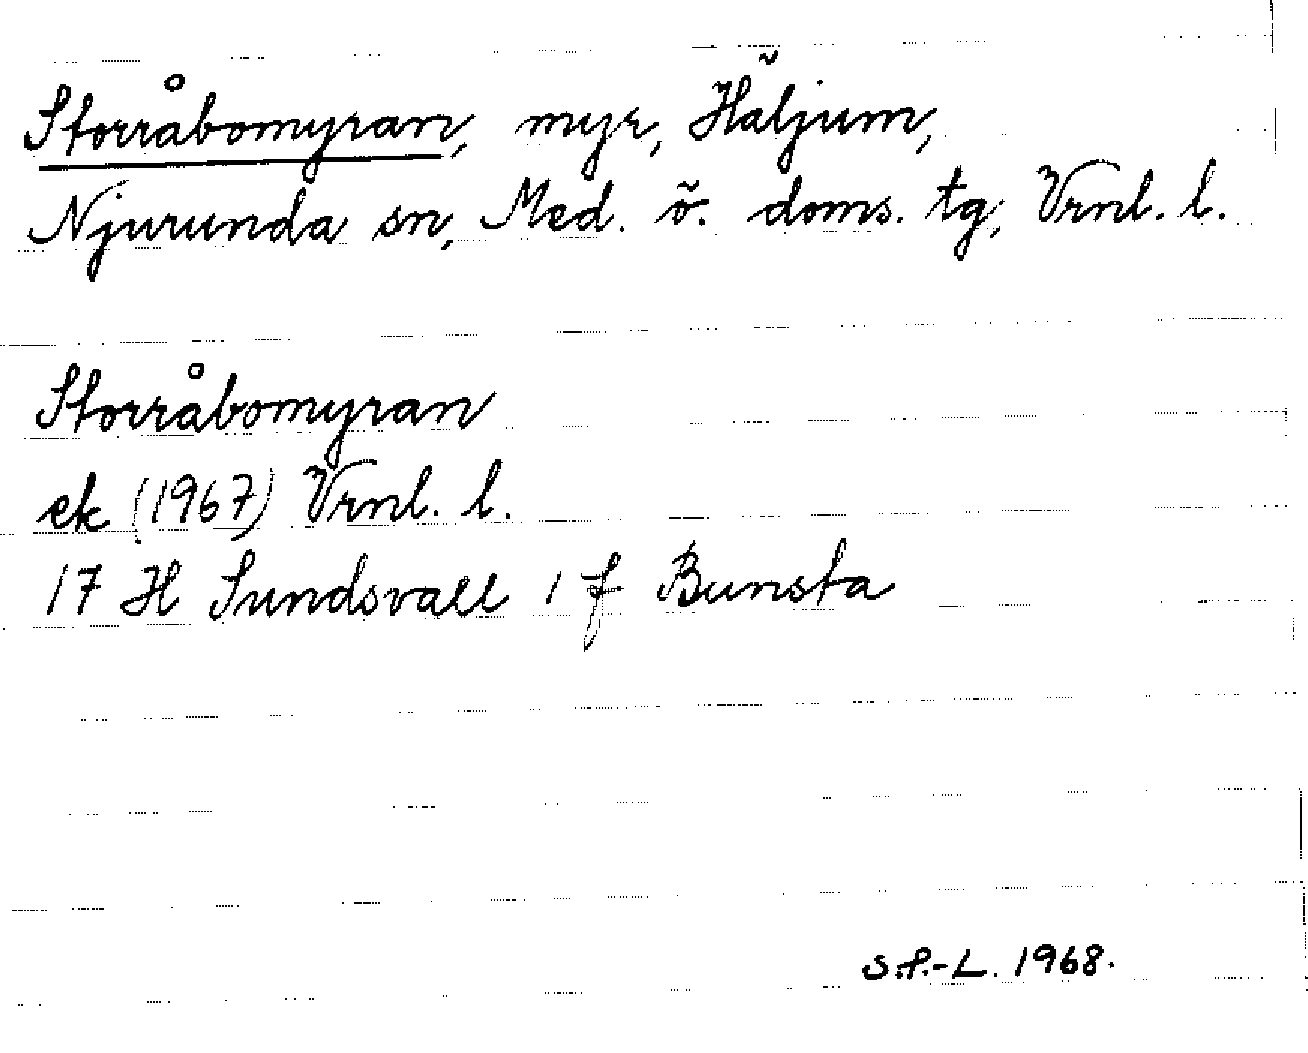 Storråbomyran, myr, Häljum,
Njurunda sn, Med. ö. doms. tg, Vrnl. l.
Storråbomyran
ek (1967) Vrnl. l.
17 H Sundsvall 1 f Bunsta
S.P.-L. 1968.